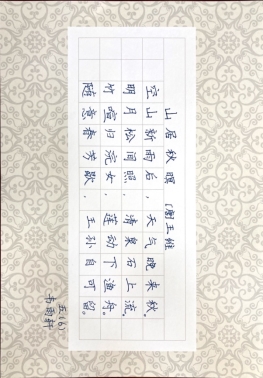 山居秋暝 [唐]王维
空山新雨后，天气晚来秋。
明月松间照，清泉石上流。
竹喧归浣女，莲动下渔舟。
随意春芳歇，王孙自可留。
五（6）